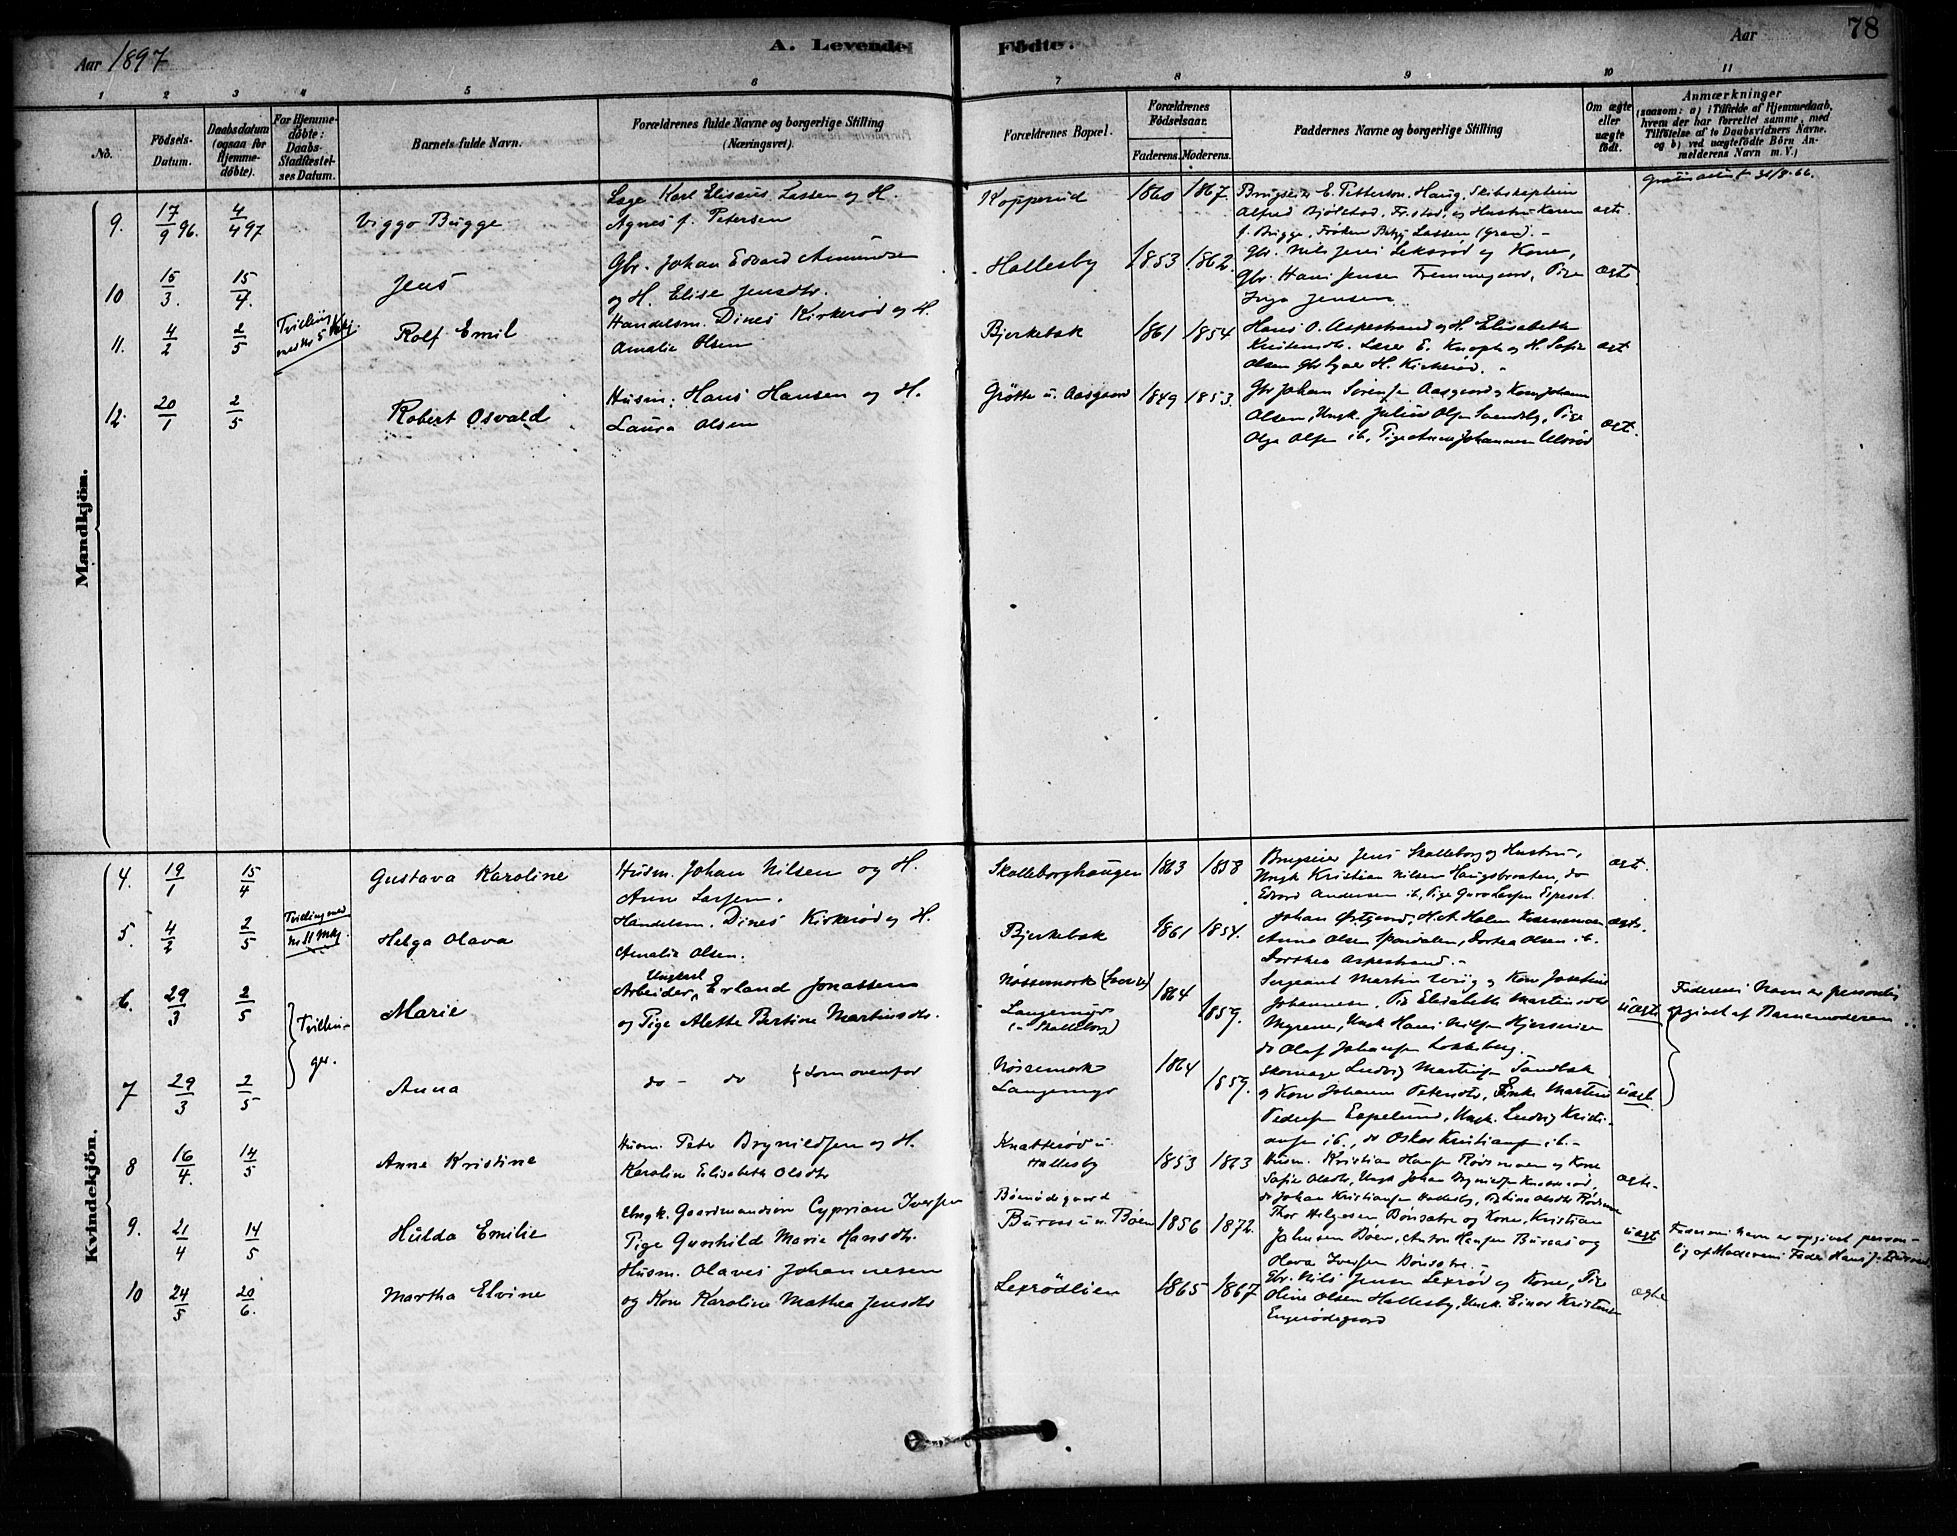 78
Aar 1897
A. Levende
Födte.
Aar
1 2 3 4 5 6 7 8 9 10 11
No.
Födsels-
Datum.
Daabsdatum
(ogsaa for
Hjemme-
döbte).
For Hjemme-
döbte:
Daabs-
Stadfæstel-
ses Datum.
Barnets fulde Navn.
Forældrenes fulde Navne og borgerlige Stilling
(Næringsvei).
Forældrenes Bopæl.
Forældrenes
Födselsaar.
Faderens. Moderens.
Faddernes Navne og borgerlige Stilling
Om ægte
eller
uægte
födt.
Anmærkninger
(saasom: a) i Tilfælde af Hjemmedaab,
hvem der har forrettet samme, med
Tilföielse af to Daabsvidners Navne,
og b) ved uægtefödte Börn An-
melderens Navn m. V.)
Mandkjön.
9. 17/9 96. 4/4 97 Viggo Bugge
Læge Karl Elisæus Lassen og H.
Agnes f. Petersen
Kopperud 1860 1867.
E. Petterson, Haug, Skibskaptein
Alfred Bjölstad, Fr.stad, og Hustru Karen
f. Bugge, Fröken Lassen (Gran). -
ægte.
10 15/3. 15/4. Jens
Gbr. Johan Edvard Amundsen
og H. Elise Jensdtr.
Hallesby 1853 1862.
Gbr. Nils Jens Leksröd og Kone,
Gbr. Hans Jensen Pige
Inga Jensen
ægte
11. 4/2 2/5 Tvilling
med No 5 Kvkj. Rolf Emil
Handelsm. Dines Kirkeröd og H.
Amalie Olsen
Bjerkebak 1861 1854
Hans O. Aspestrand og H. Elisabeth
Lærer E. og H. Sofie
Olsen H. Kirkeröd.
ægte
12. 20/1 2/5 Robert Osvald
Husm. Hans Hansen og H.
Laura Olsen
Grötte u. Aasgaard 1849 1853.
Gbr Johan Sörensen Aasgaard og Kone Johanne
Olsen, Ungk. Julius Olsen Pige
Olga Olsen ib., Pige Johannesen Ulvröd
ægte.
Kvindekjön.
4. 19/1 15/4 Gustava Karoline
Husm. Johan Nilsen og H.
Anne Larsen.
Skalleborghaugen 1863 1858
Brugseier Jens Skalleborg og Hustru,
Ungk Kristian Nilsen Haugsbraaten, do
Edvard Andersen ib, Pige Larsen
ægte.
5. 4/2 2/5 Tvilling med
No 11 Mkj. Helga Olava
Handelsm. Dines Kirkeröd og H.
Amalie Olsen.
Bjerkebak 1861 1854.
Johan H. A. Holm
Anna Olsen Dorthea Olsen ib.
Dorthea Aspestrand. -
ægte.
6. 29/3 2/5 Tvillin-
ger. Marie
Ungkarl
Arbeider, Erland Jonassen
og Pige Alette Bertine Martinsdtr.
Langemyr
(u Skalleborg)
1864 1859.
Sergeant Martin og Kone Josefine
Johannesen, Pige Elisabeth Martinsdtr
Myrene, Ungk Hans Nilsen
do Olaf Johansen
uægte
Faderens Navn er personlig
opgivet af Barnemoderen
7 29/3 2/5 Anna
do - do } som ovenfor
Langemyr
1864 1859.
Skomager Ludvig Martinsen Sandbak
og Kone Johanne Petersdtr, Enke Martine
Pedersen Espelund, Ungk. Ludvig Kristi-
ansen ib., do Oskar Kristiansen ib. -
uægte.
8 16/4. 14/5 Anne Kristine
Husm. Peter Brynildsen og H.
Karoline Elisabeth Olsdtr
Knatteröd u.
Hallesby 1853 1863
Husm. Kristian Hansen og Kone
Sofie Olsdtr, Ungk Johan Brynildsen
do Johan Kristiansen Hallesby, Olsdtr
ægte.
9. 21/4 14/5 Hulda Emilie
Ungk. Gaardmandsön Cyprian Iversen
Pige Gunhild Marie Hansdtr.
Buraas u. Böen 1856 1872.
Thor Helgesen og Kone, Kristian
Jahnsen Böen, Anton Hansen Buraas og
Olava Iversen
uægte
Faderens Navn er opgivet person-
lig af Moderens Fader Hans J.
10 24/5 20/6. Martha Elvine
Husm. Olaves Johannesen
og Kone Karoline Mathea Jensdtr
Lexrödlien 1865 1867
Gbr. Nils Jensen Lexröd og Kone, Pige
Oline Olsen Hallesby, Ungk. Einar Kristensen
ægte